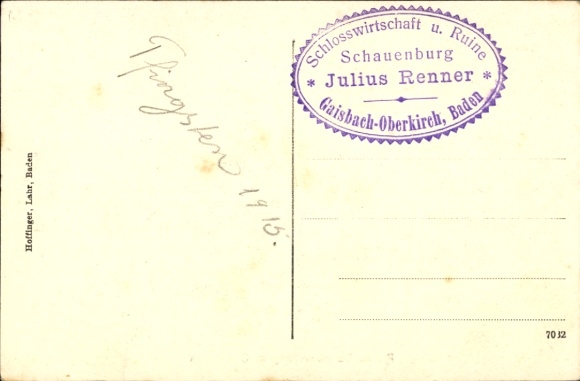 Pfingsten 1916.
Schlosswirtschaft u. Ruine
Schauenburg
* Julius Renner *
Gaisbach-Oberkirch, Baden
Hoffinger, Lahr, Baden
7032